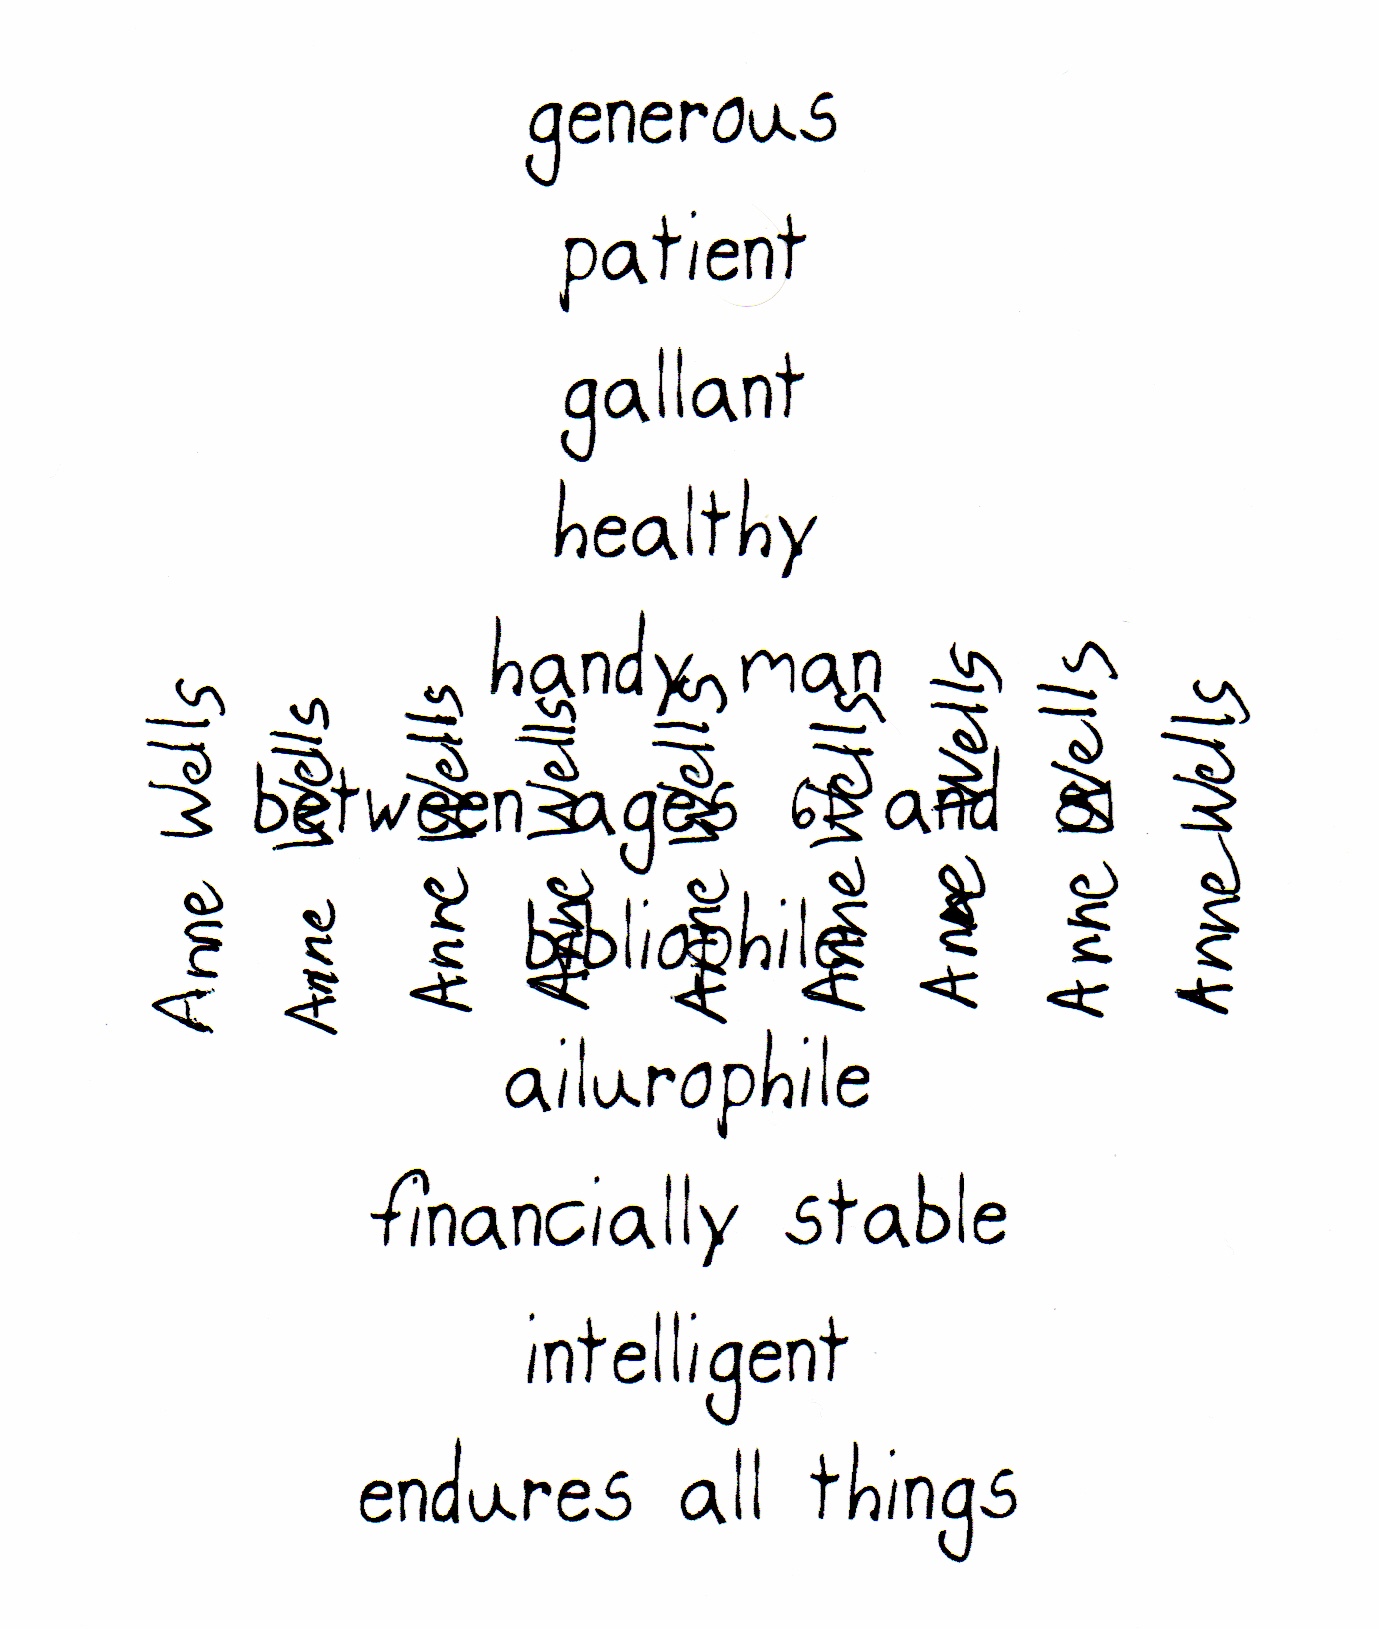 generous
patient
gallant
healthy
handy man
between ages and
bibliophile
ailurophile
financially stable
intelligent
endures all things
Anne Wells
Anne Wells
Anne Wells
Anne Wells
Anne Wells
Anne Wells
Anne Wells
Anne Wells
Anne Wells